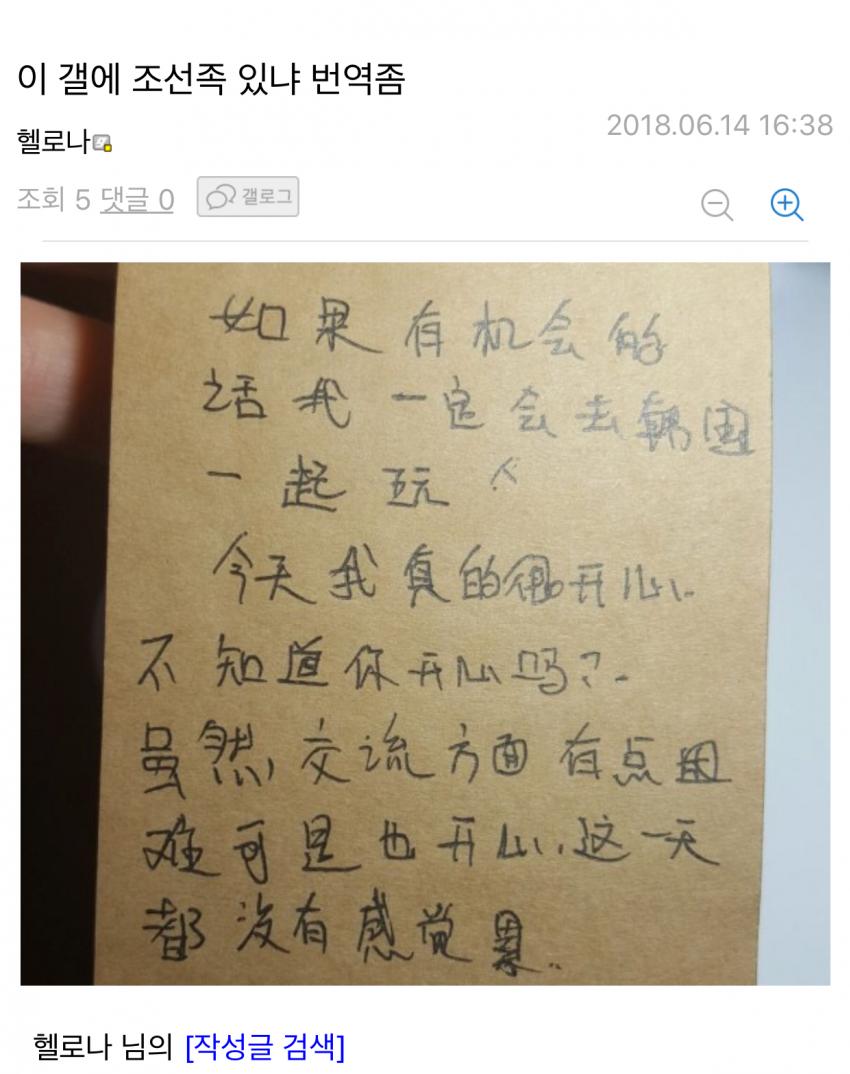 이 갤에 조선족 있냐 번역좀
헬로나
2018.06.14 16:38
조회 5 댓글 0 갤로그
如果有机会的
话我一定会去韩国
一起玩
今天我真的很开心.
不知道你开心吗?.
虽然交流方面有点困
难可是也开心.这一天
都没有感觉累..
헬로나 님의 [작성글 검색]